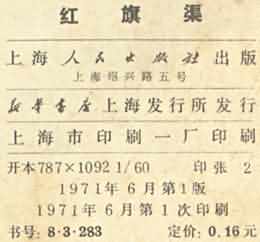 红旗渠
上海人民出版社出版
上海绍兴路五号
新华书店上海发行所发行
上海市印刷一厂印刷
开本787×1092 1/60 印张 2
1971年6月第1版
1971年6月第1次印刷
书号: 8·3·283 定价: 0.16元